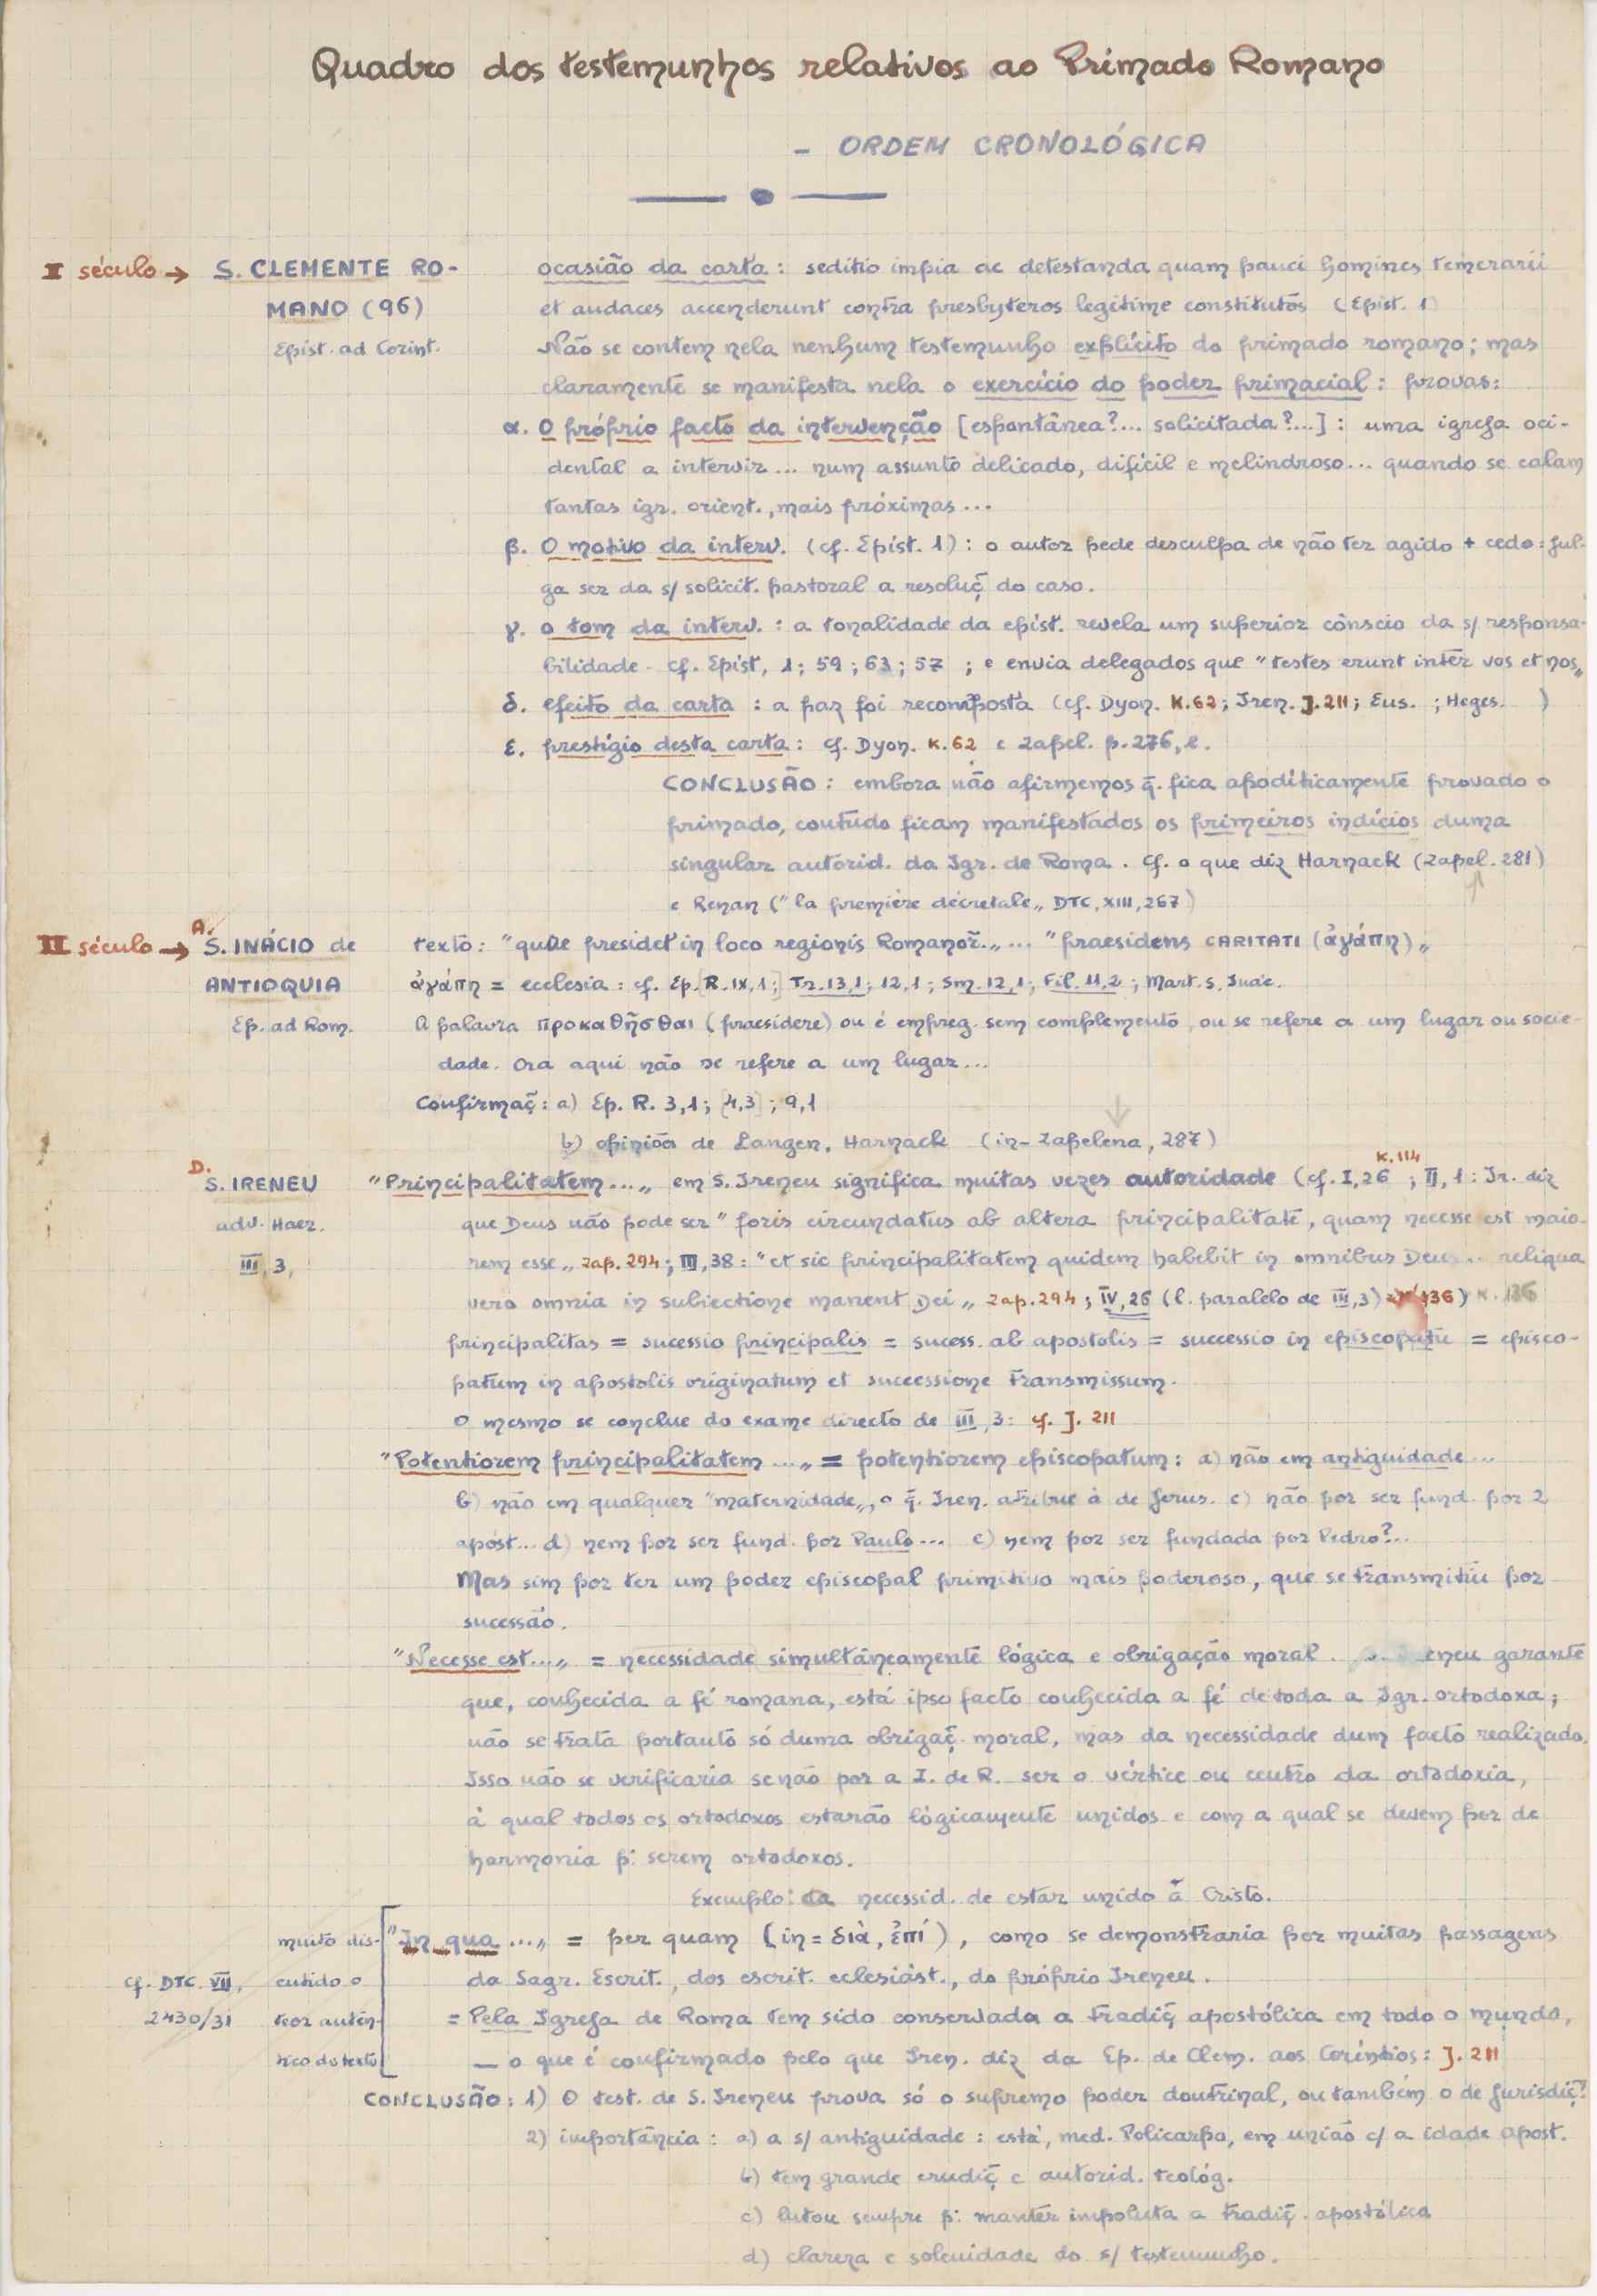 Quadro dos testemunhos relativos ao Primado Romano
- ORDEM CRONOLÓGICA
I século → S. CLEMENTE RO- ocasião da carta: seditio impia ac detestanda quam pauci homines temerarii
MANO (96) et audaces accenderunt contra presbyteros legitime constitutos (Epist. 1)
Epist. ad Corint. Não se contem nela nenhum testemunho explícito do primado romano; mas
claramente se manifesta nela o exercício do poder primacial: provas:
α. O próprio facto da intervenção [espontânea?... solicitada?...]: uma igreja oci-
dental a intervir... num assunto delicado, difícil e melindroso... quando se calam
tantas igr. orient., mais próximas...
β. O motivo da interv. (cf. Epist. 1): o autor pede desculpa de não ter agido + cedo: jul-
ga ser da s/ solicit. pastoral a resoluç̃ do caso.
γ. o tom da interv.: a tonalidade da epist. revela um superior cônscio da s/ responsa-
bilidade - cf. Epist, 1; 59; 63; 57 ; e envia delegados que "testes erunt inter vos et nos„
δ. efeito da carta: a paz foi recomposta (cf. Dyon. K.62; Iren. J.211; Eus. ; Heges. )
ε. prestígio desta carta: cf. Dyon. K.62 e Zapel. p.276, e.
CONCLUSÃO: embora não afirmemos q̃. fica apodìticamente provado o
primado, contudo ficam manifestados os primeiros indícios duma
singular autorid. da Igr. de Roma. Cf. o que diz Harnack (Zapel. 281)
e Renan ("la première décretale„ DTC, XIII, 267)
II século → A. S. INÁCIO de texto: "quae presidet in loco regionis Romanor̃.„... "praesidens CARITATI (ἀγάπη)„
ANTIOQUIA ἀγάπη = ecclesia: cf. Ep. [R. IX, 1;] Tr. 13,1; 12,1; Sm. 12,1; Fil. 11,2; Mart. S. Inác.
Ep. ad Rom. A palavra προκαθῆσθαι (praesidere) ou é empreg. sem complemento, ou se refere a um lugar ou socie-
dade. Ora aqui não se refere a um lugar...
Confirmaç̃: a) Ep. R. 3,1; [4,3]; 9,1
b) opinião de Langen, Harnack (in- Zapelena, 287)
K.114
D. S. IRENEU "Principalitatem...„ em S. Ireneu significa muitas vezes autoridade (cf. I, 26 ; II, 1: Ir. diz
adv. Haer. que Deus não pode ser "foris circundatus ab altera principalitate, quam necesse est maio-
III, 3, rem esse„ Zap. 294; III, 38: "et sic principalitatem quidem habebit in omnibus Deus... reliqua
vero omnia in subiectione manent Dei„ Zap. 294; IV, 26 (l. paralelo de III, 3) 136) K. 136
principalitas = sucessio principalis = sucess. ab apostolis = successio in episcopatu = episco-
patum in apostolis originatum et successione transmissum.
O mesmo se conclue do exame directo de III, 3: cf. J. 211
"Potentiorem principalitatem...„ = potentiorem episcopatum: a) não em antiguidade...
b) não em qualquer "maternidade„, o q̃. Iren. atribue à de Jerus. c) não por ser fund. por 2
apost... d) nem por ser fund. por Paulo... e) nem por ser fundada por Pedro?..
Mas sim por ter um poder episcopal primitivo mais poderoso, que se transmitiu por
sucessão.
"Necesse est...„ = necessidade simultâneamente lógica e obrigação moral. eneu garante
que, conhecida a fé romana, está ipso facto conhecida a fé de toda a Igr. ortodoxa;
não se trata portanto só duma obrigaç̃. moral, mas da necessidade dum facto realizado.
Isso não se verificaria senão por a I. de R. ser o vértice ou centro da ortodoxia,
à qual todos os ortodoxos estarão lògicamente unidos e com a qual se devem por de
harmonia p: serem ortodoxos.
Exemplo: da necessid. de estar unido a Cristo.
muito dis- "In qua...„ = per quam (in = διὰ, ἐπί), como se demonstraria por muitas passagens
cf. DTC. VII, cutido o da Sagr. Escrit., dos escrit. eclesiást., do próprio Ireneu.
2430/31 teor autên- = Pela Igreja de Roma tem sido conservada a tradiç̃ apostólica em todo o mundo,
tico do texto — o que é confirmado pelo que Iren. diz da Ep. de Clem. aos Coríntios: J. 211
CONCLUSÃO: 1) O test. de S. Ireneu prova só o supremo poder doutrinal, ou também o de jurisdiç̃?
2) importância: a) a s/ antiguidade: está, med. Policarpo, em união c/ a idade apost.
b) tem grande erudiç̃ e autorid. teológ.
c) lutou sempre p: manter impoluta a tradiç̃. apostólica
d) clareza e solenidade do s/ testemunho.